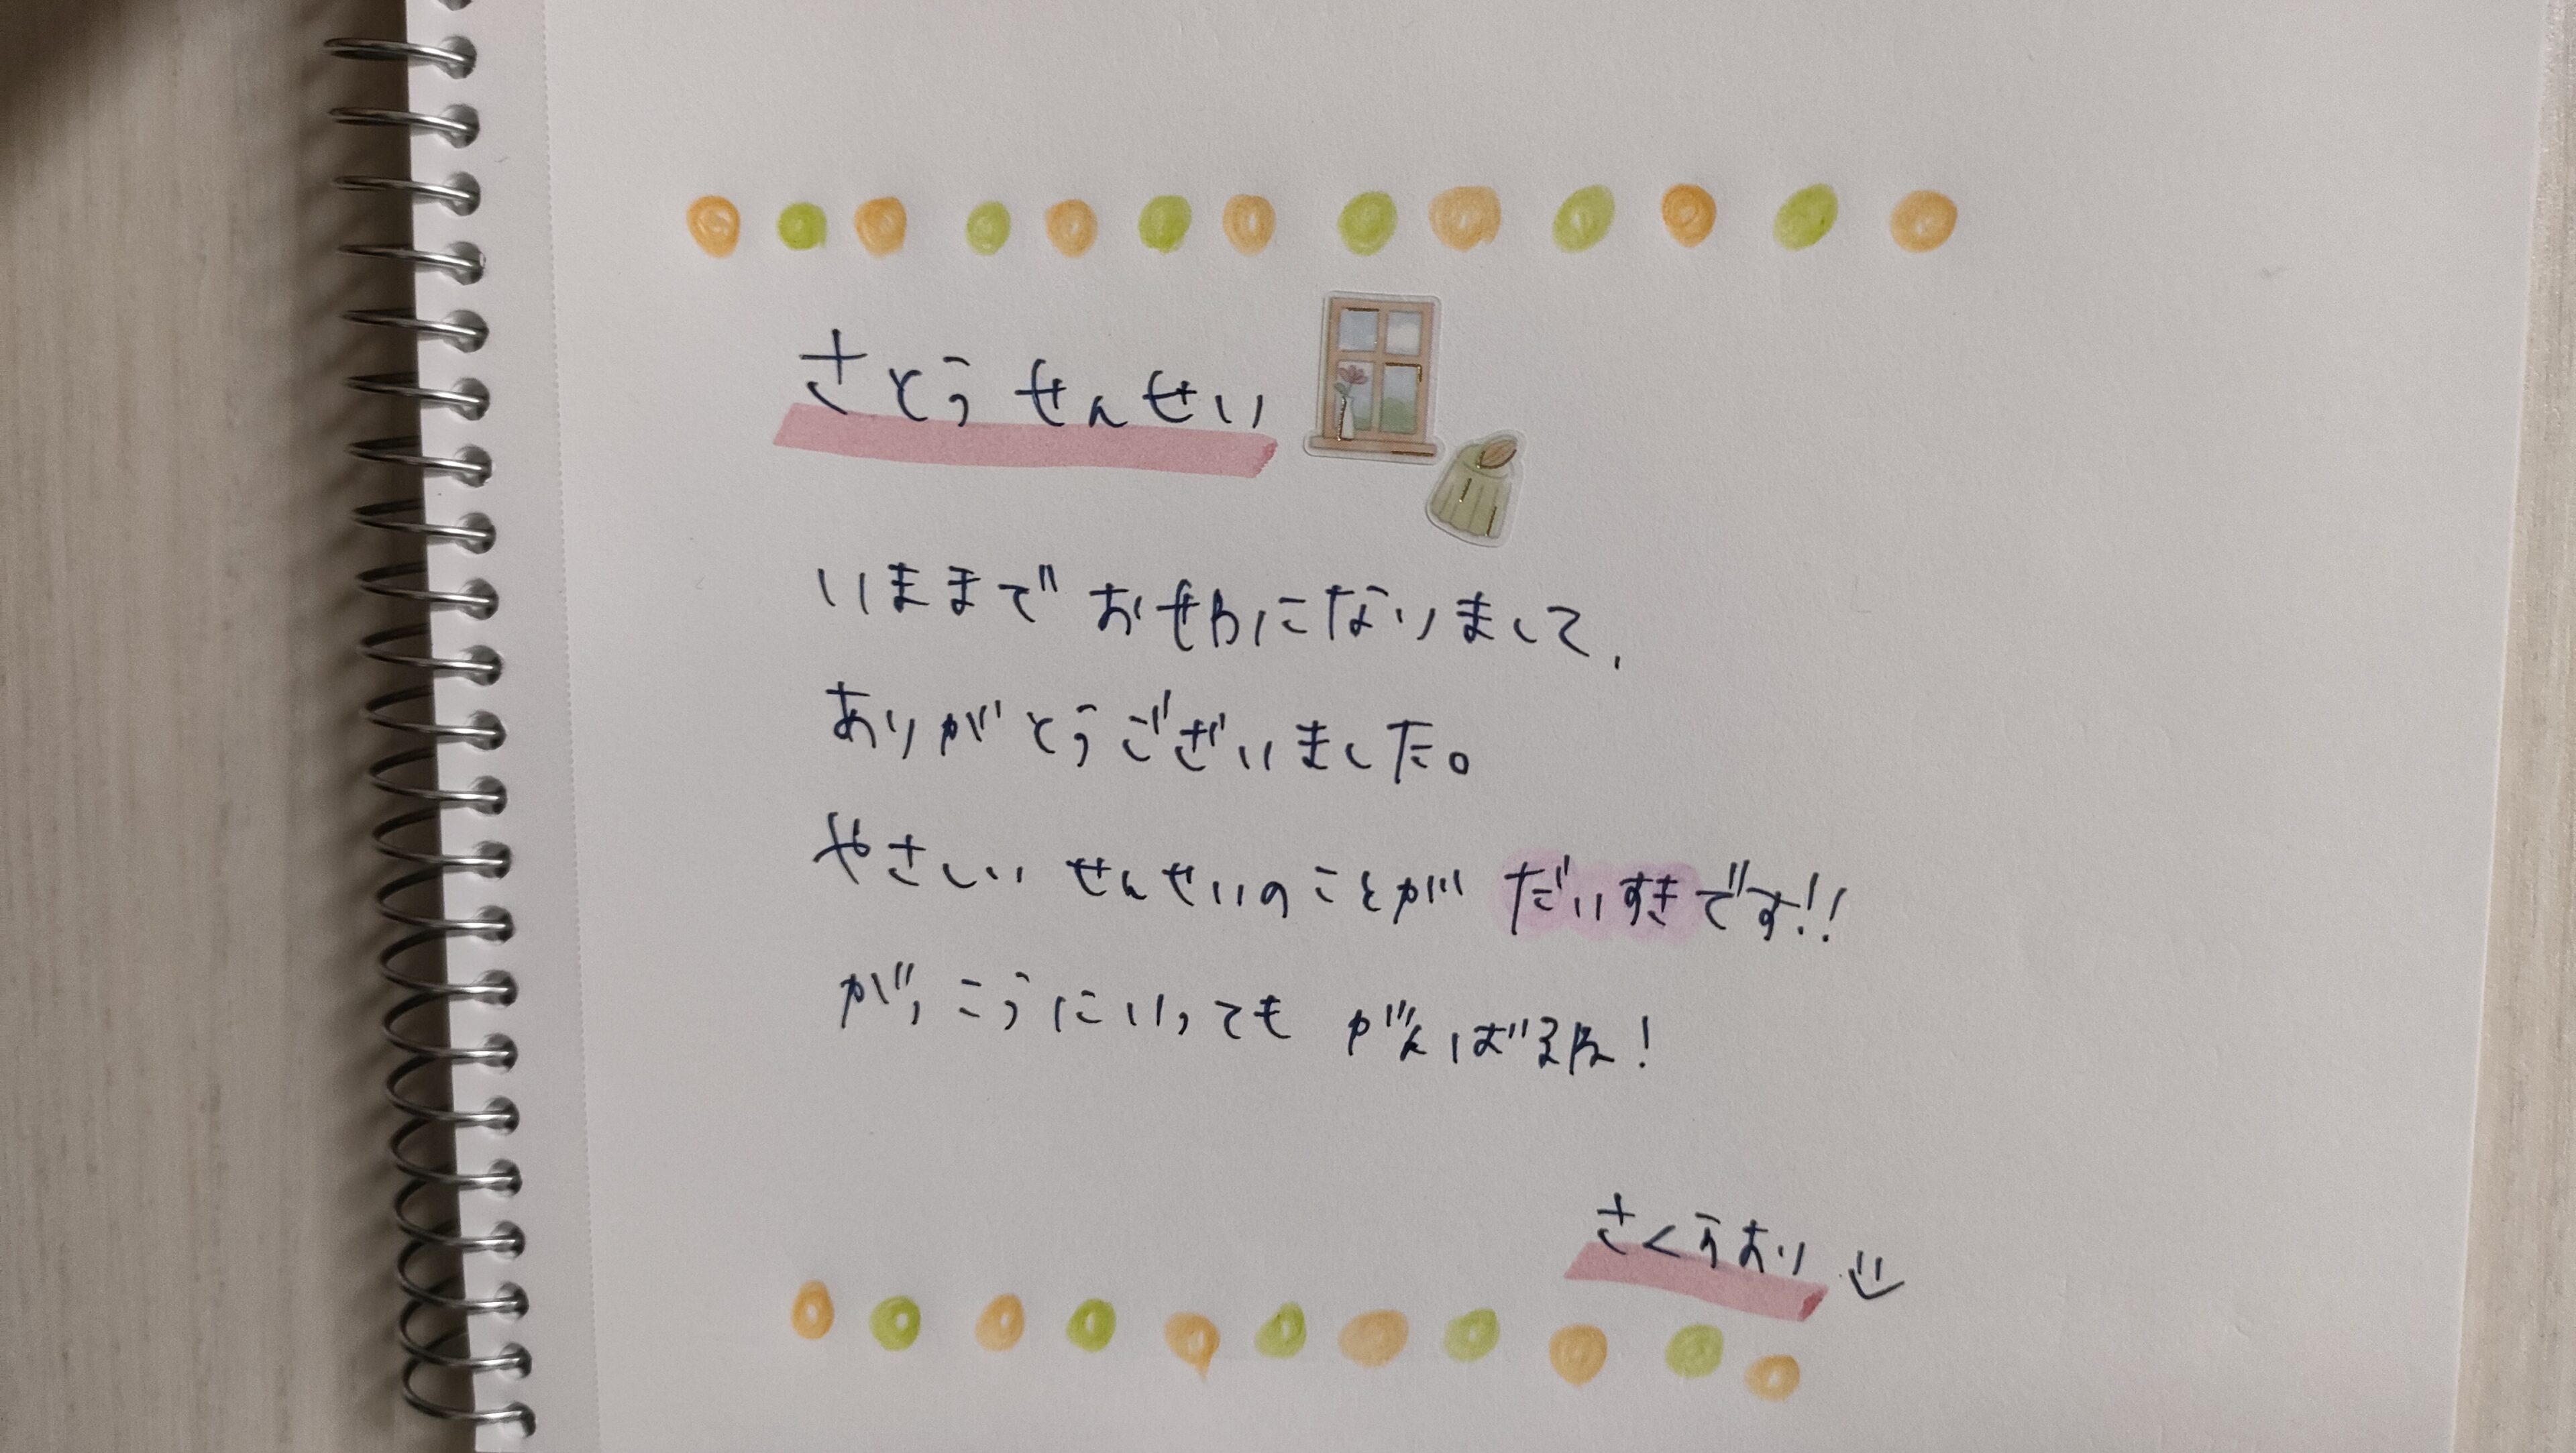 さとうせんせい
いままで おせわになりまして、
ありがとうございました。
やさしい せんせいのことが だいすきです!!
がっこうにいっても がんばるね!
さくらおり